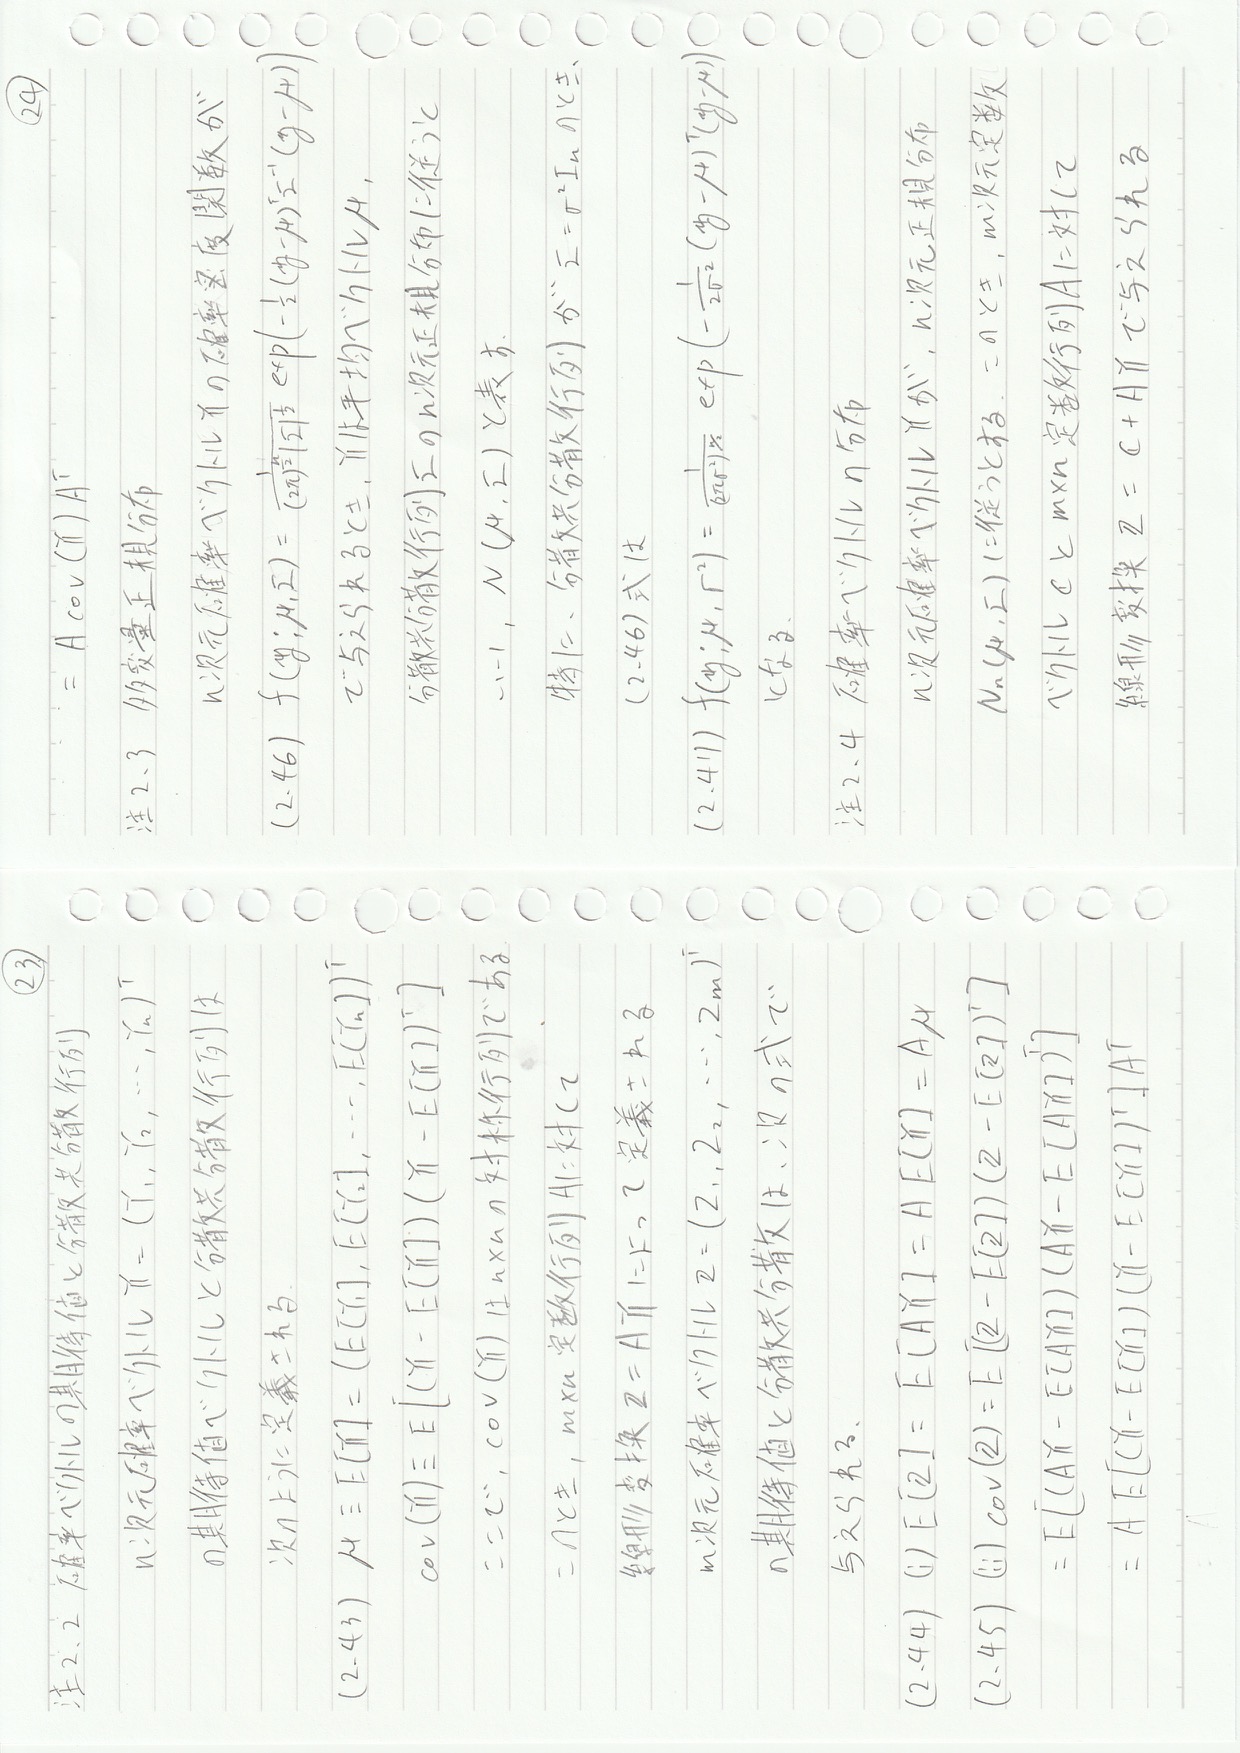 ㉓
注2.2 確率ベクトルの期待値と分散共分散行列
n次元確率ベクトル Y = (Y₁, Y₂, …, Yₙ)ᵀ
の期待値ベクトルと分散共分散行列は
次のように定義される.
(2.43) μ ≡ E[Y] = (E[Y₁], E[Y₂], …, E[Yₙ])ᵀ
cov(Y) ≡ E[(Y - E[Y])(Y - E[Y])ᵀ]
ここで, cov(Y) はn×nの対称行列である.
このとき, m×n 定数行列Aに対して
線形変換 Z = AY によって定義される
m次元確率ベクトル Z = (Z₁, Z₂, …, Zm)ᵀ
の期待値と分散共分散は、次の式で
与えられる.
(2.44) (i) E[Z] = E[AY] = A E[Y] = Aμ
(2.45) (ii) cov(Z) = E[(Z - E[Z])(Z - E[Z])ᵀ]
= E[(AY - E[AY])(AY - E[AY])ᵀ]
= A E[(Y - E[Y])(Y - E[Y])ᵀ]Aᵀ
㉔
= A cov(Y) Aᵀ
注2.3 多変量正規分布
n次元確率ベクトルYの確率密度関数が
(2.46) f(y; μ, Σ) = 1/((2π)^{n/2}|Σ|^{1/2}) exp(-1/2 (y-μ)ᵀΣ⁻¹(y-μ))
で与えられるとき, Yは平均ベクトルμ,
分散共分散行列Σのn次元正規分布に従うと
いい, N(μ, Σ) と表す.
特に、分散共分散行列が Σ = σ²Iₙ のとき、
(2.46)式は
(2.47) f(y; μ, σ²) = 1/(2πσ²)^{n/2} exp(-1/(2σ²) (y-μ)ᵀ(y-μ))
となる.
注2.4 確率ベクトルの分布
n次元確率ベクトルYが, n次元正規分布
Nₙ(μ, Σ) に従うとする. このとき, m次元定数
ベクトル c と m×n 定数行列Aに対して
線形変換 Z = c + AY で与えられる